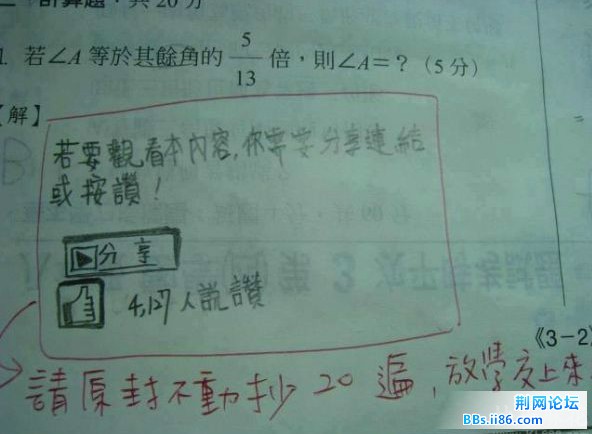 計算題，共20分
1. 若∠A等於其餘角的5/13倍，則∠A=？（5分）
【解】
若要觀看本內容,你需要分享連結
或按讚!
分享
4,127人說讚
《3-2
請原封不動抄20遍,放學交上來
荆网论坛
BBs.ii86.com